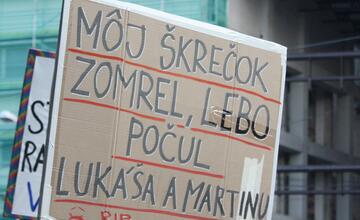 MÔJ ŠKREČOK
ZOMREL, LEBO
POČUL
LUKÁŠA A MARTINU
RIP